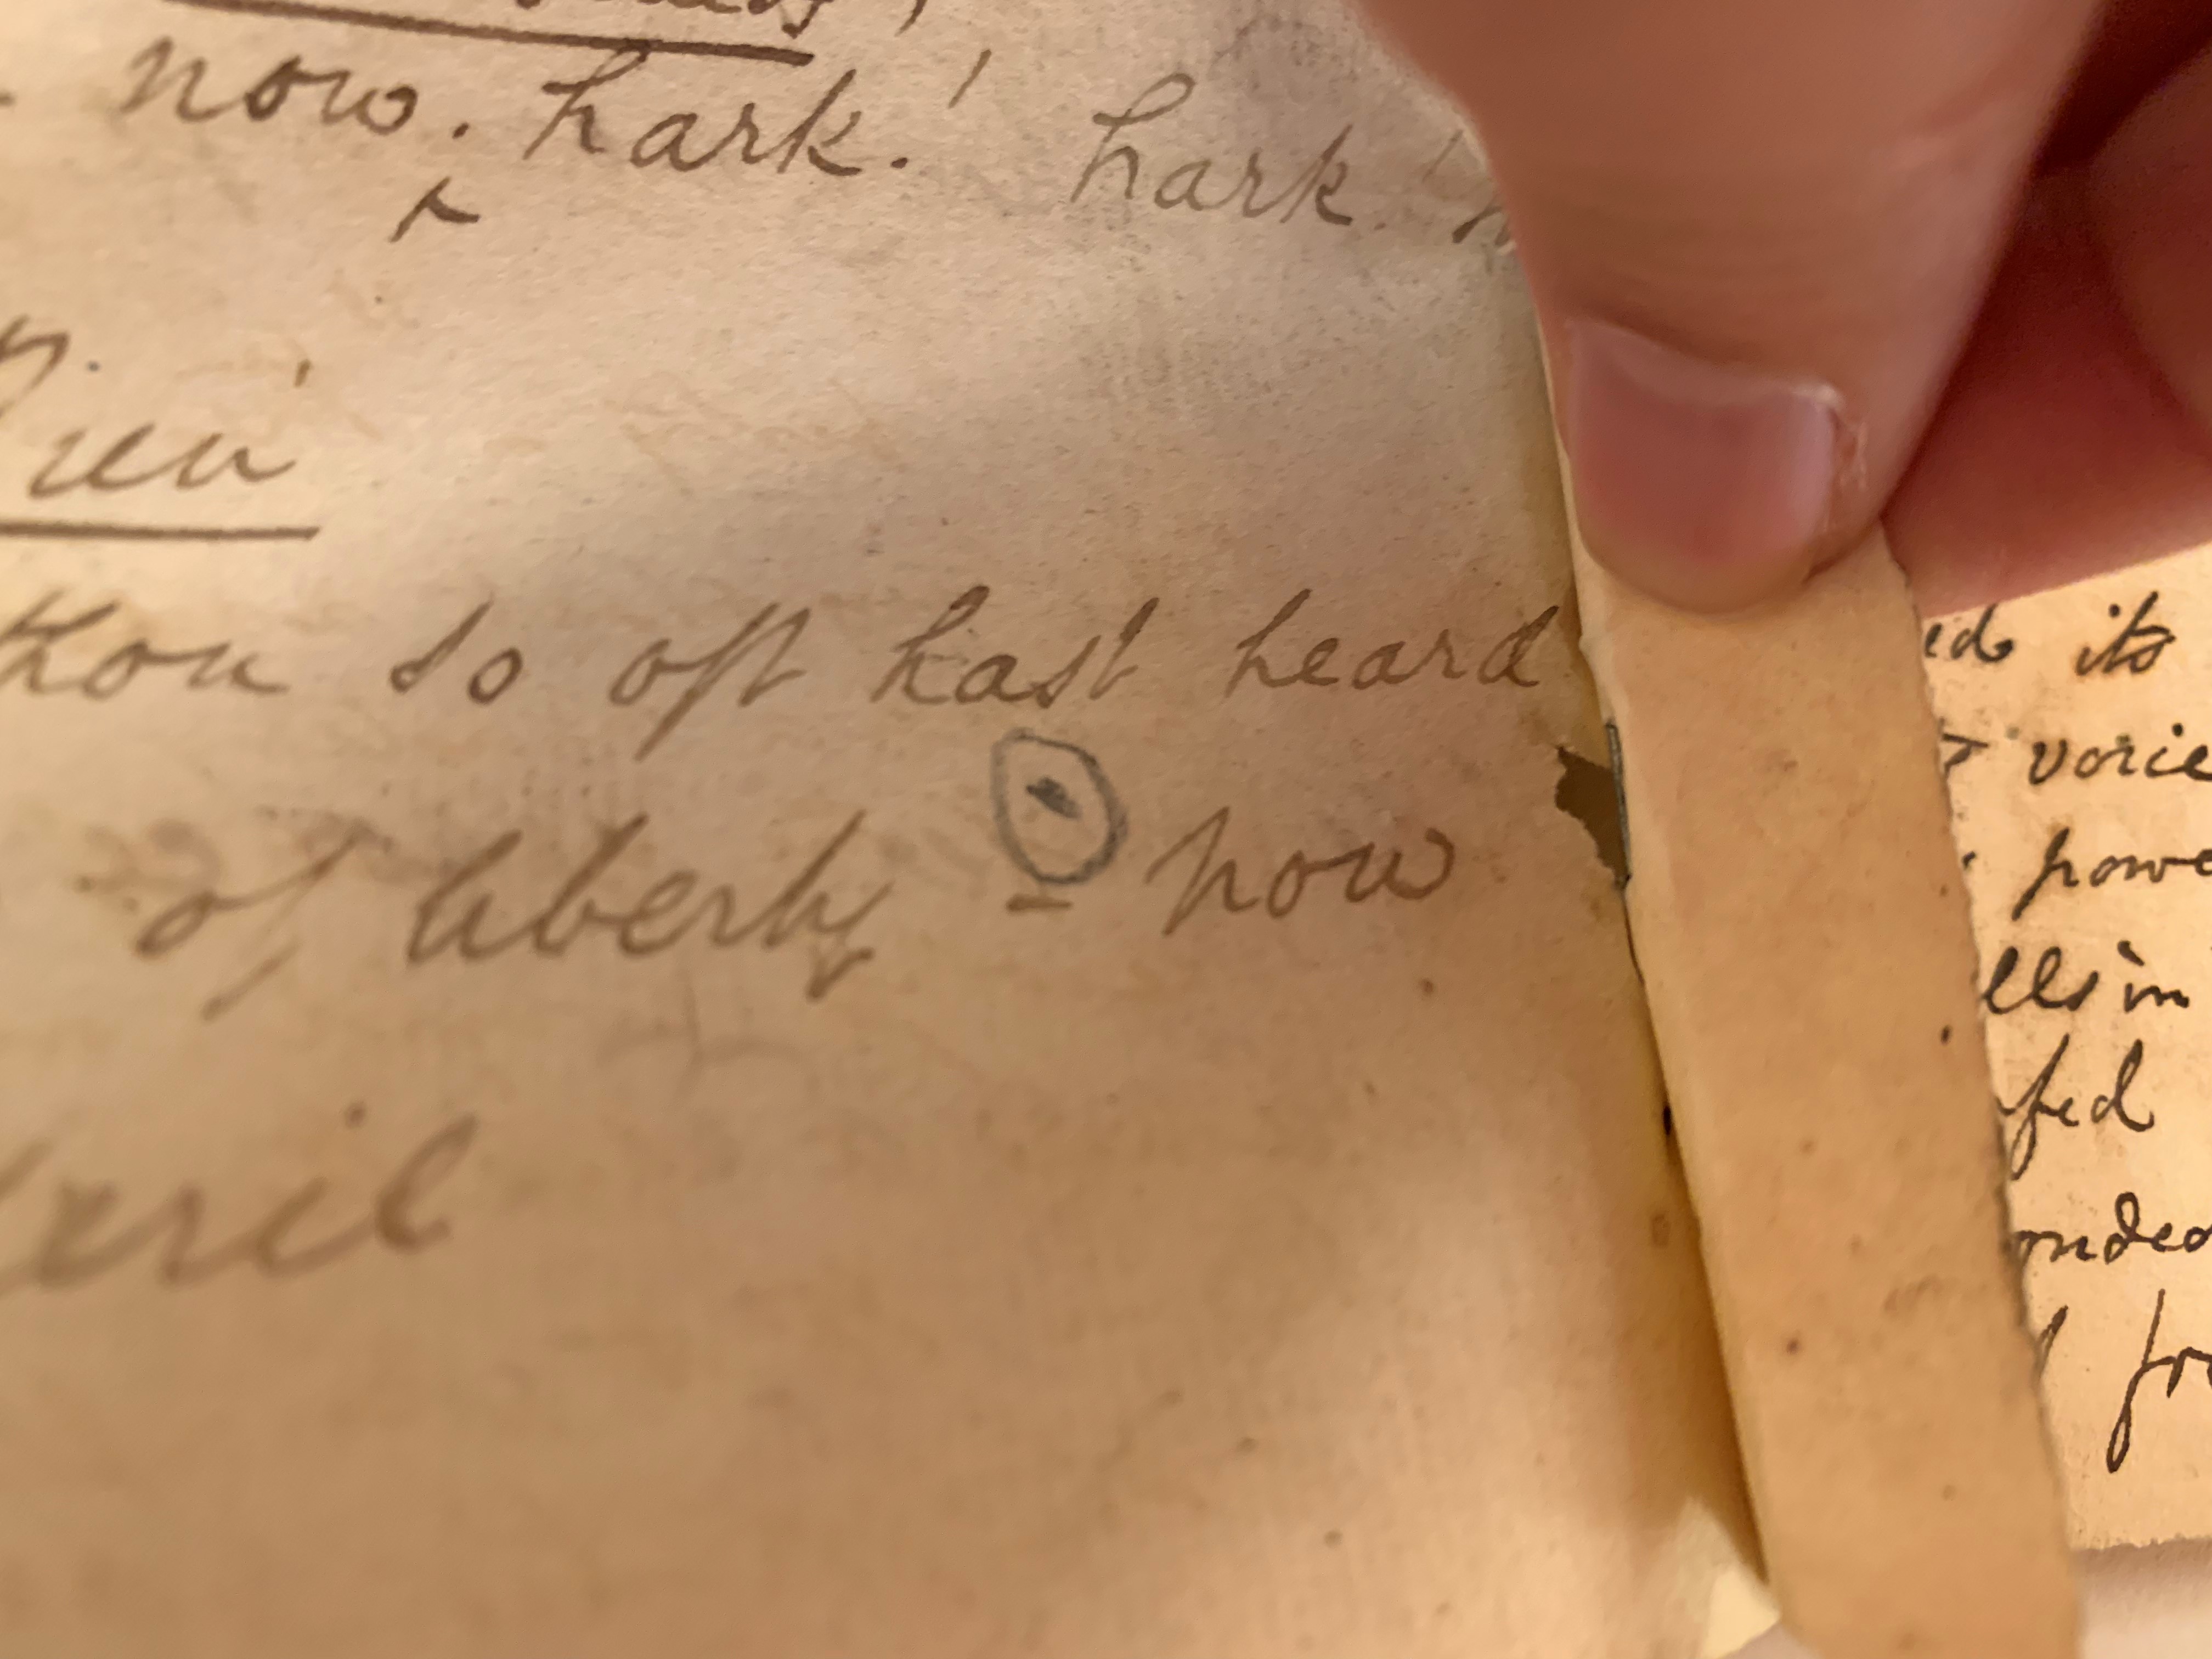 now. hark! hark!
thou so oft hast heard
of liberty - now
its
voice
powe
ells in
fed
onded